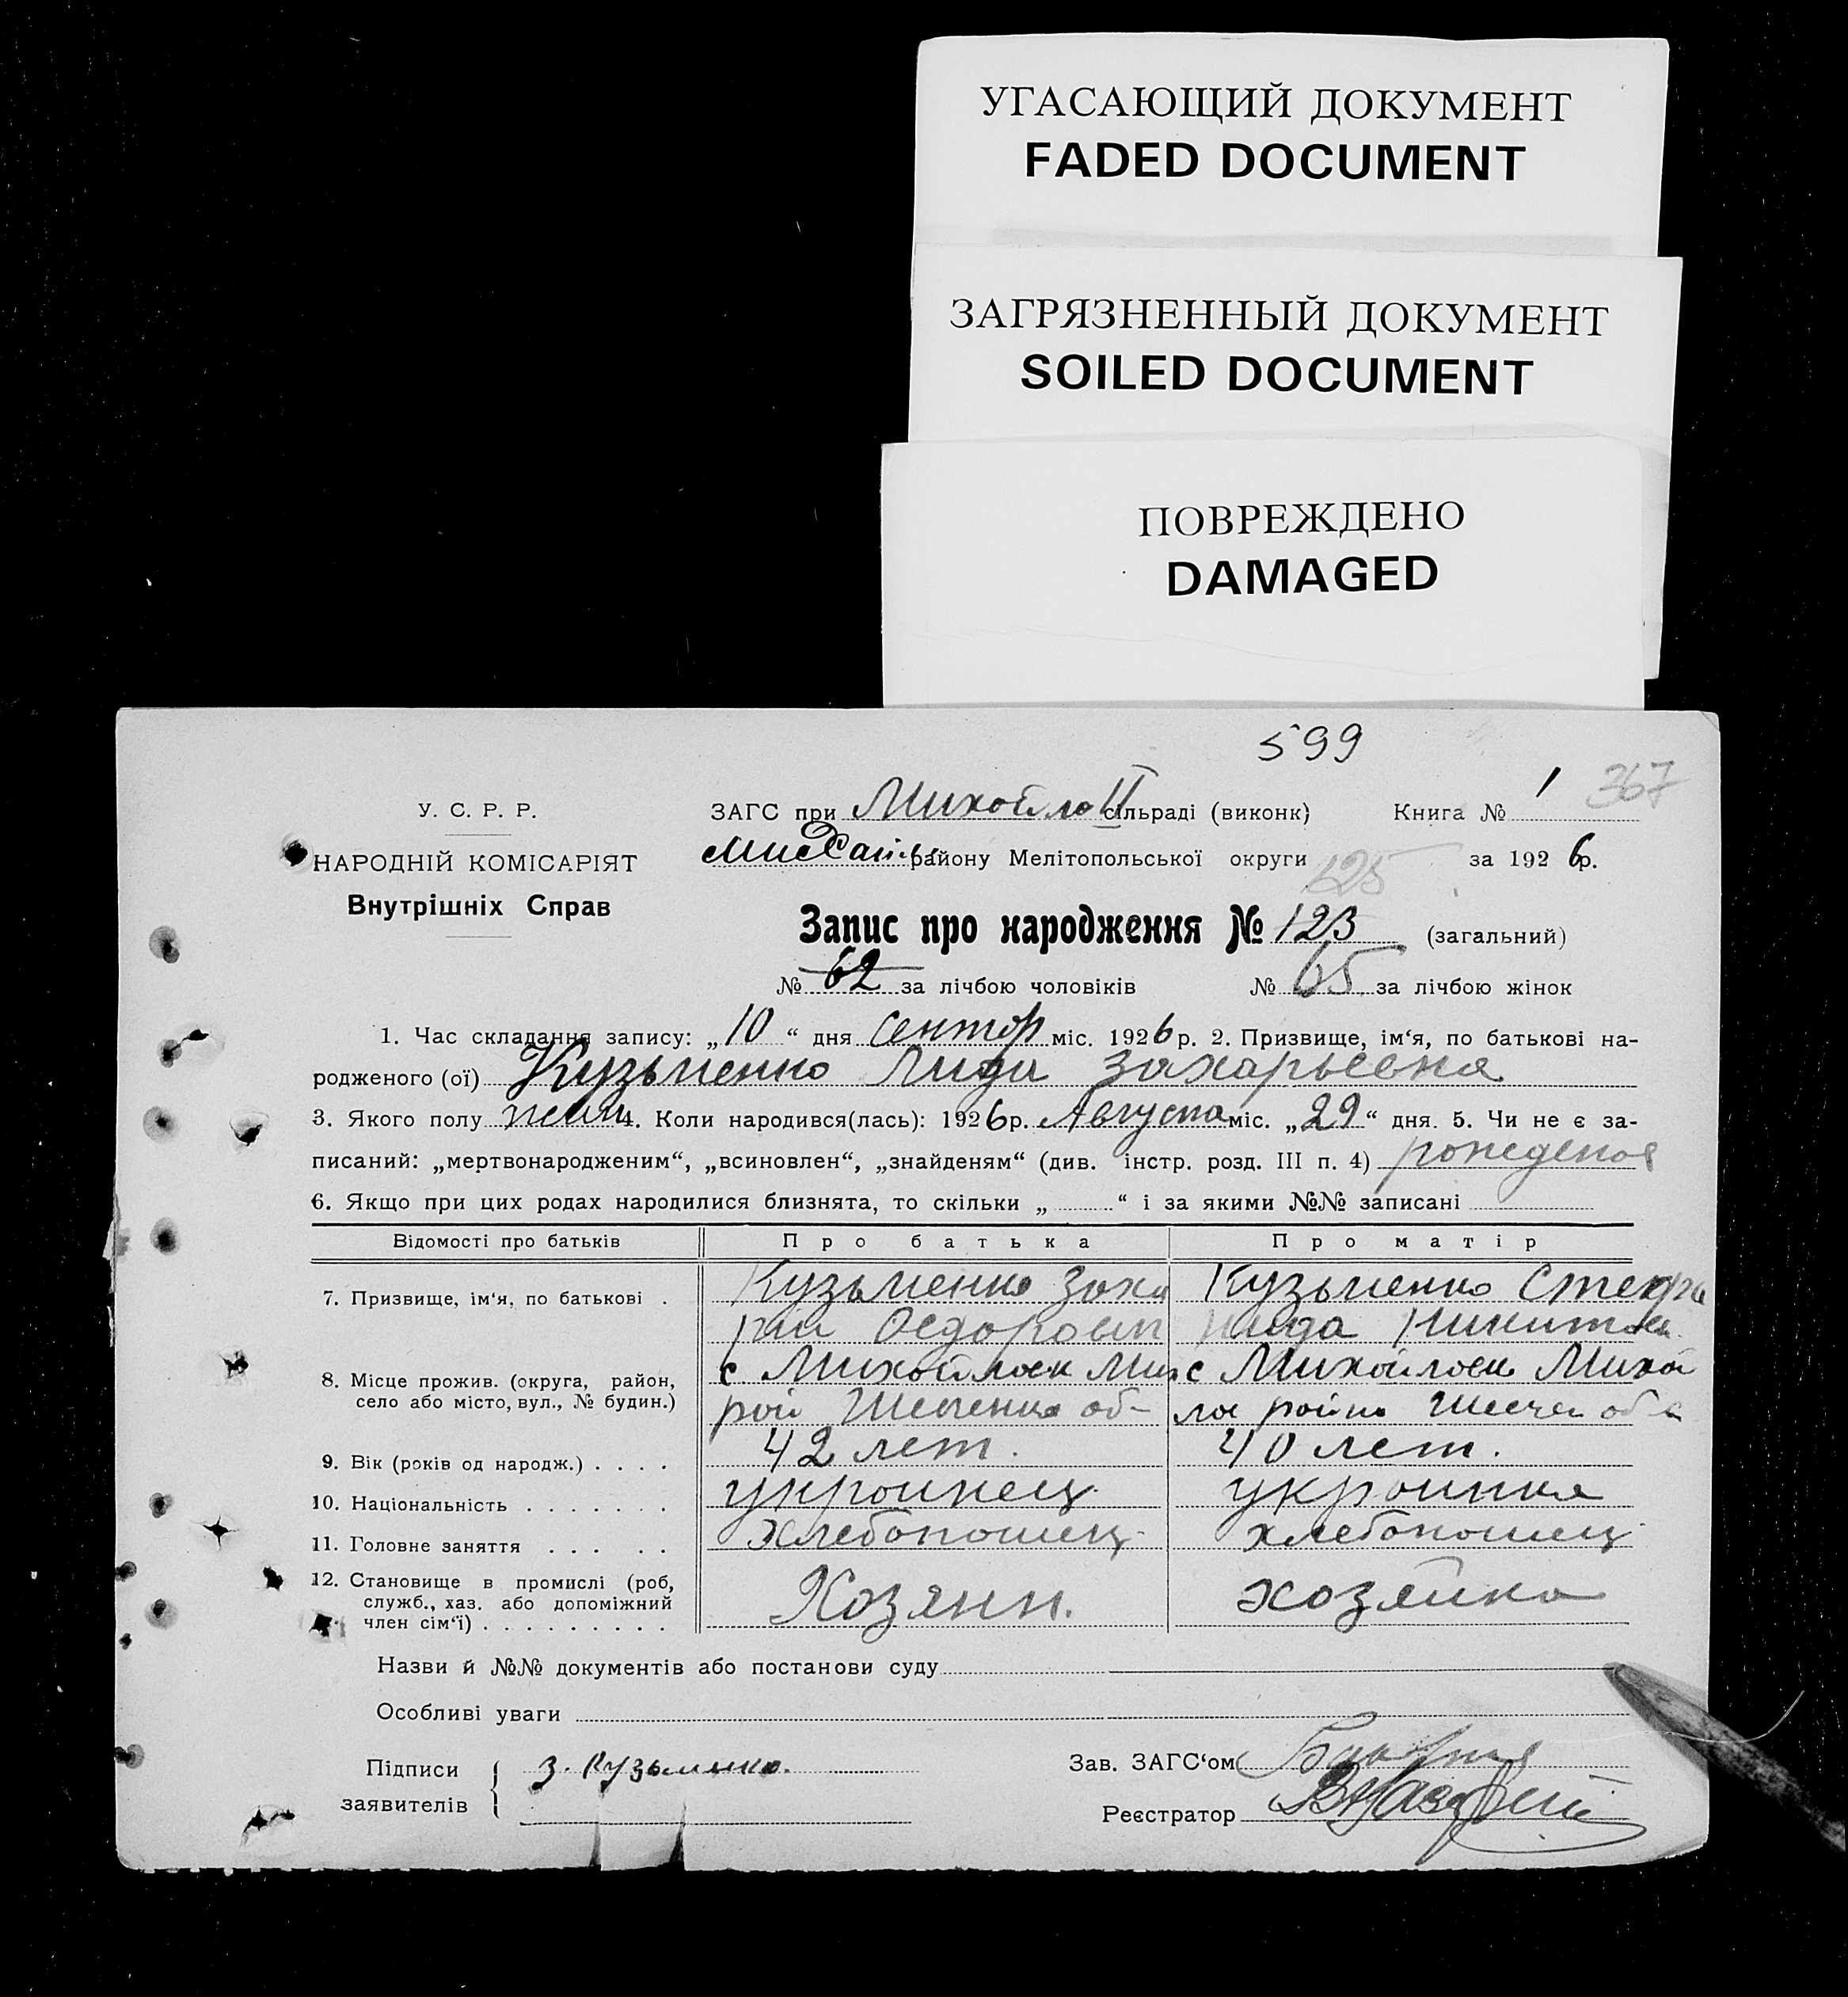 УГАСАЮЩИЙ ДОКУМЕНТ
FADED DOCUMENT
ЗАГРЯЗНЕННЫЙ ДОКУМЕНТ
SOILED DOCUMENT
ПОВРЕЖДЕНО
DAMAGED
599
367
У. С. Р. Р.
НАРОДНІЙ КОМІСАРІЯТ
Внутрішніх Справ
ЗАГС при Михойло II сільраді (виконк) Книга № 1
району Мелітопольської округи за 1926 р.
125
Запис про народження № 123 (загальний)
№ 62 за лічбою чоловіків № 65 за лічбою жінок
1. Час складання запису: „10“ дня сентяб міс. 1926 р. 2. Призвище, ім‘я, по батькові на-
родженого (ої) Кузьменко Лида Захарьевна
3. Якого полу жен 4. Коли народився(лась): 1926 р. Августа міс. „29“ дня. 5. Чи не є за-
писаний: „мертвонародженим“, „всиновлен“, „знайденям“ (див. інстр. розд. III п. 4) рожеденоя
6. Якщо при цих родах народилися близнята, то скільки „ “ і за якими №№ записані
Відомості про батьків Про батька Про матір
7. Призвище, ім‘я, по батькові . Кузьменко Заха Кузьменко Стефа
рий Федорович нида Никитов
8. Місце прожив. (округа, район, с Михойловк Мих с Михойловк Михой
село або місто, вул., № будин.) рой об- ла район
9. Вік (років од народж.) . . . . 42 лет. 40 лет.
10. Національність . . . . . . . украинец украинка
11. Головне заняття . . . . . хлебопошец хлебопошец
12. Становище в промислі (роб, Хозяин. хозяйка
служб., хаз. або допоміжний
член сім‘ї) . . . . . . . . .
Назви й №№ документів або постанови суду
Особливі уваги
Підписи З. Кузьменко. Зав. ЗАГС‘ом
заявителів Реєстратор